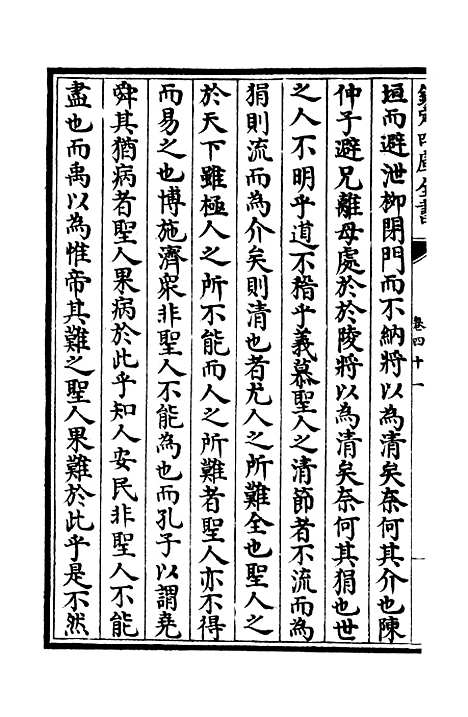 欽定四庫全書
卷四十一
垣而避泄柳閉門而不納將以為清矣奈何其介也陳
仲子避兄離母處於於陵將以為清矣奈何其狷也世
之人不明乎道不稽乎義慕聖人之清節者不流而為
狷則流而為介矣則清也者尤人之所難全也聖人之
於天下雖極人之所不能而人之所難者聖人亦不得
而易之也博施濟衆非聖人不能為也而孔子以謂堯
舜其猶病者聖人果病於此乎知人安民非聖人不能
盡也而禹以為惟帝其難之聖人果難於此乎是不然